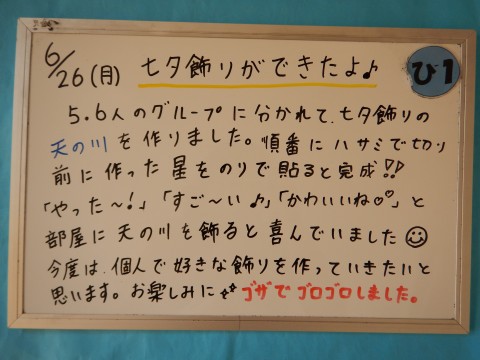 6/26(月) 七夕飾りができたよ♪ ひ1
5.6人のグループに分かれて、七夕飾りの
天の川を作りました。順番にハサミで切り
前に作った星をのりで貼ると完成!!
「やった～!」「すご～い♪」「かわいいね♡♡」と
部屋に天の川を飾ると喜んでいました☺
今度は、個人で好きな飾りを作っていきたいと
思います。お楽しみに✨ ゴザでゴロゴロしました。